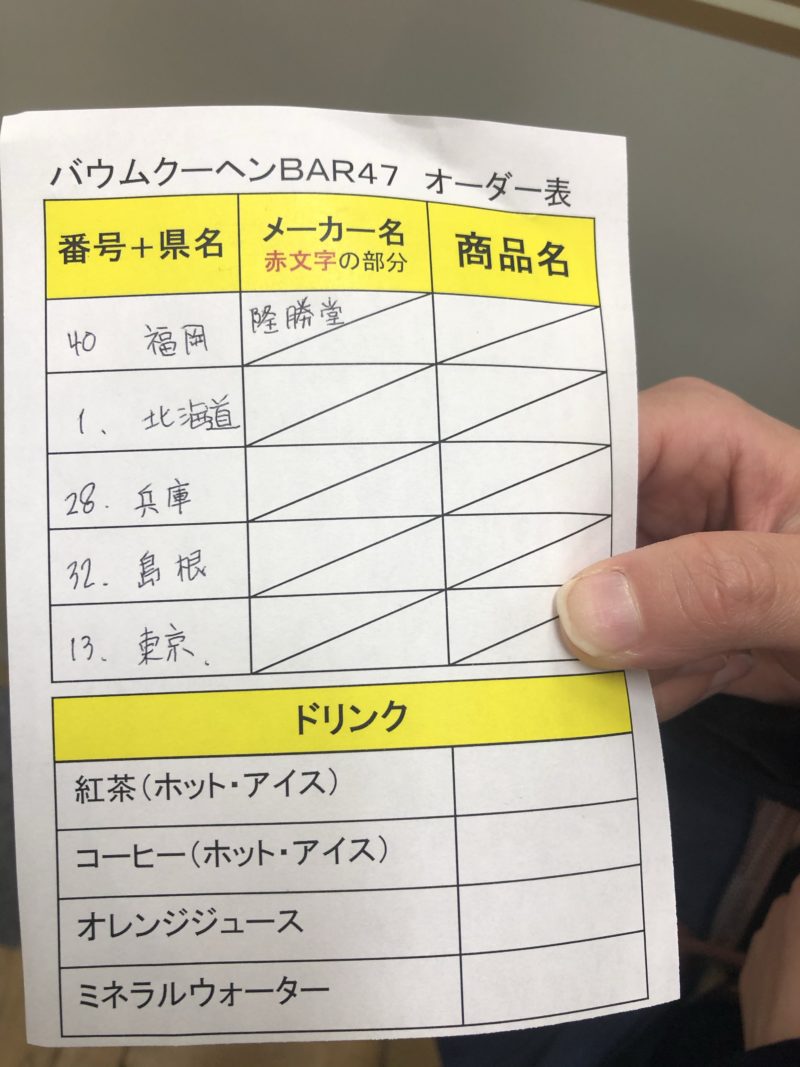 バウムクーヘンBAR47 オーダー表
番号+県名 メーカー名 赤文字の部分 商品名
40 福岡 隆勝堂
1. 北海道
28. 兵庫
32. 島根
13. 東京.
ドリンク
紅茶(ホット・アイス)
コーヒー(ホット・アイス)
オレンジジュース
ミネラルウォーター